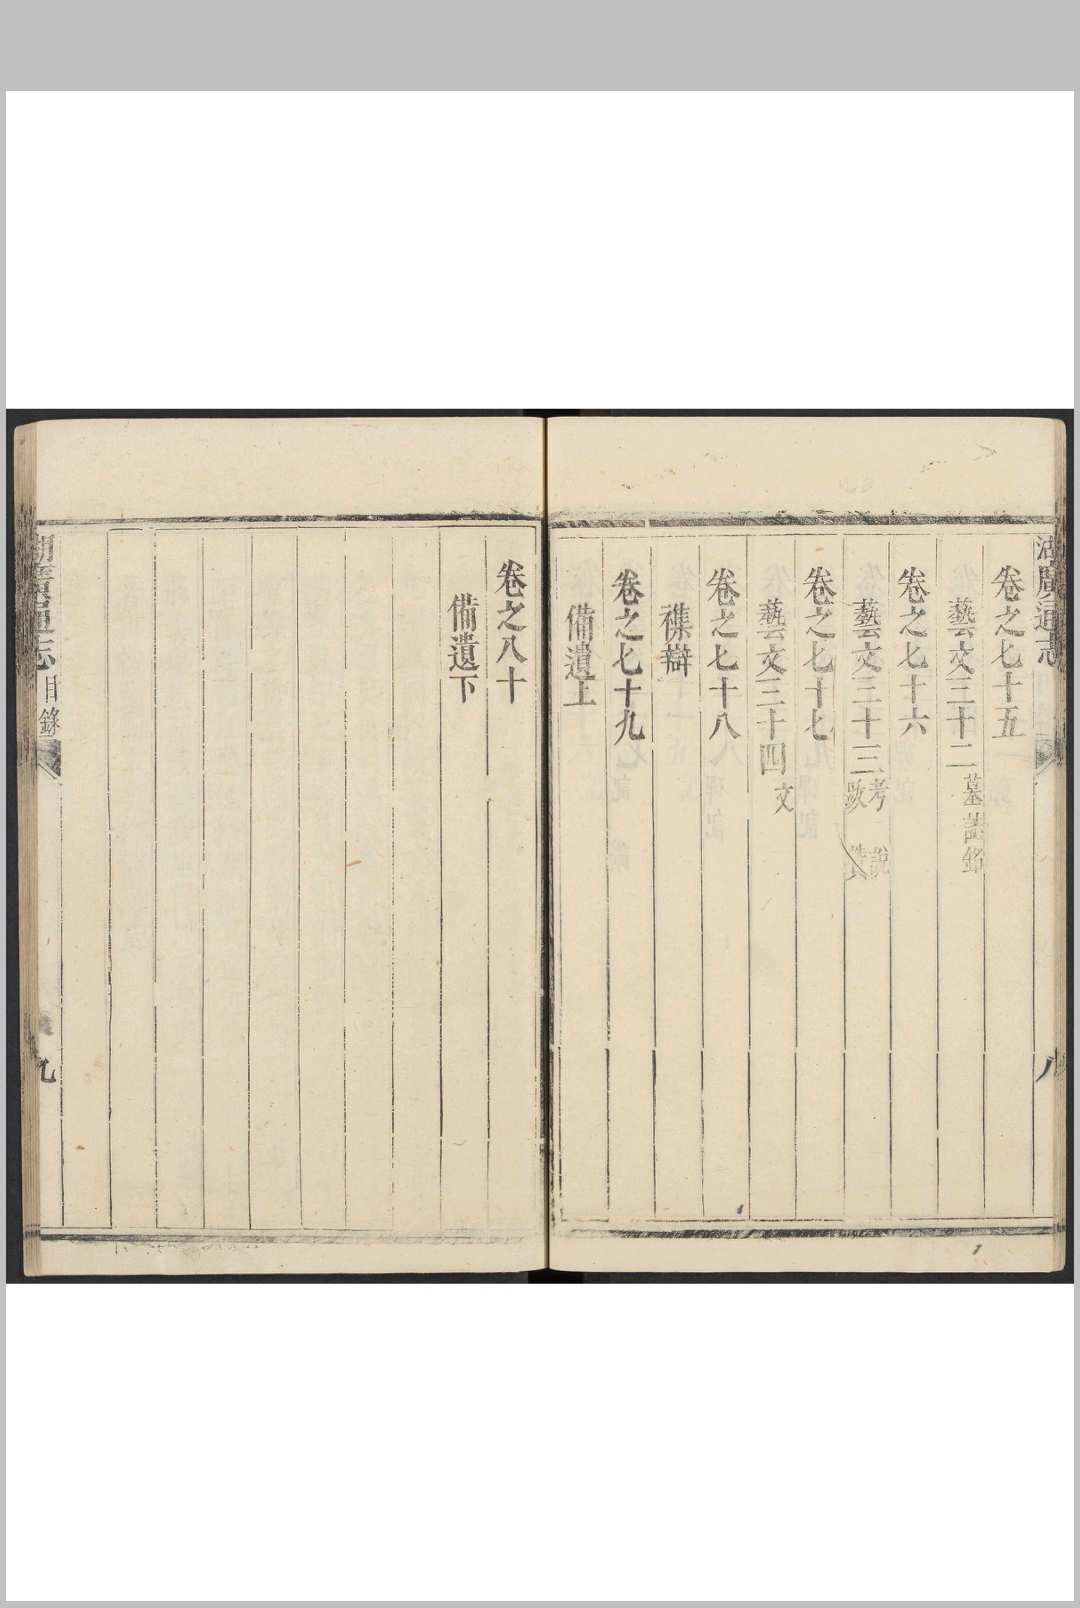 湖廣通志
八
卷之七十五
藝文三十二 墓誌銘
卷之七十六
藝文三十三 考 說
歌
卷之七十七
藝文三十四 文
卷之七十八
襍辯
卷之七十九
備遺上
卷之八十
備遺下
湖廣通志 目錄
九